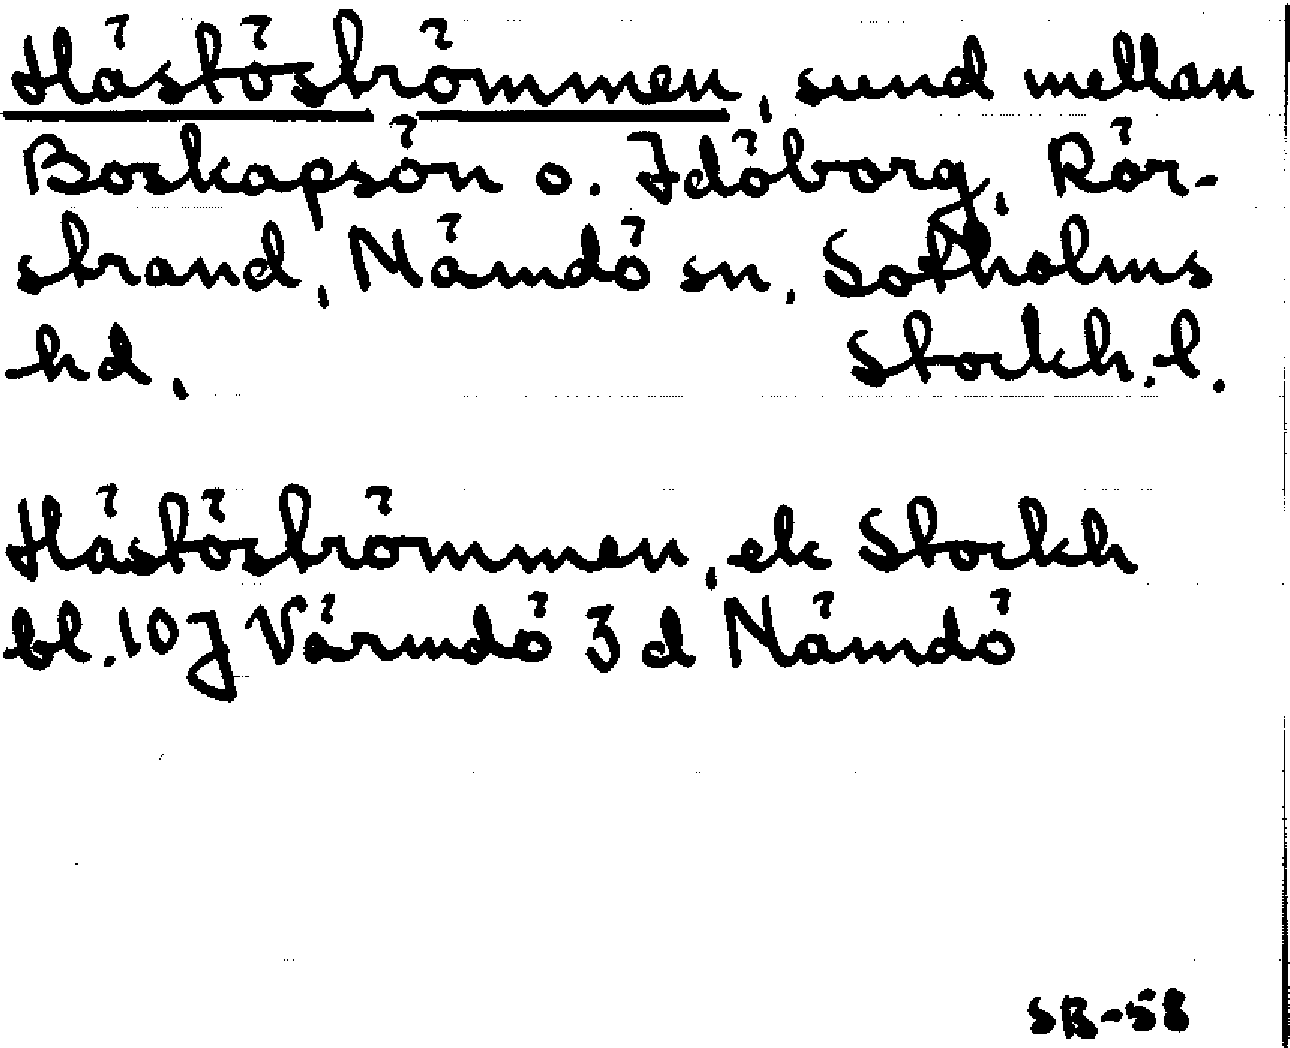 Hästöströmmen, sund mellan
Boskapsön o. Idöborg, Rör-
strand, Nämdö sn, Sotholms
hd, Stockh. l.
Hästöströmmen, ek Stockh
bl. 10J Värmdö 3 d Nämdö
SR-58